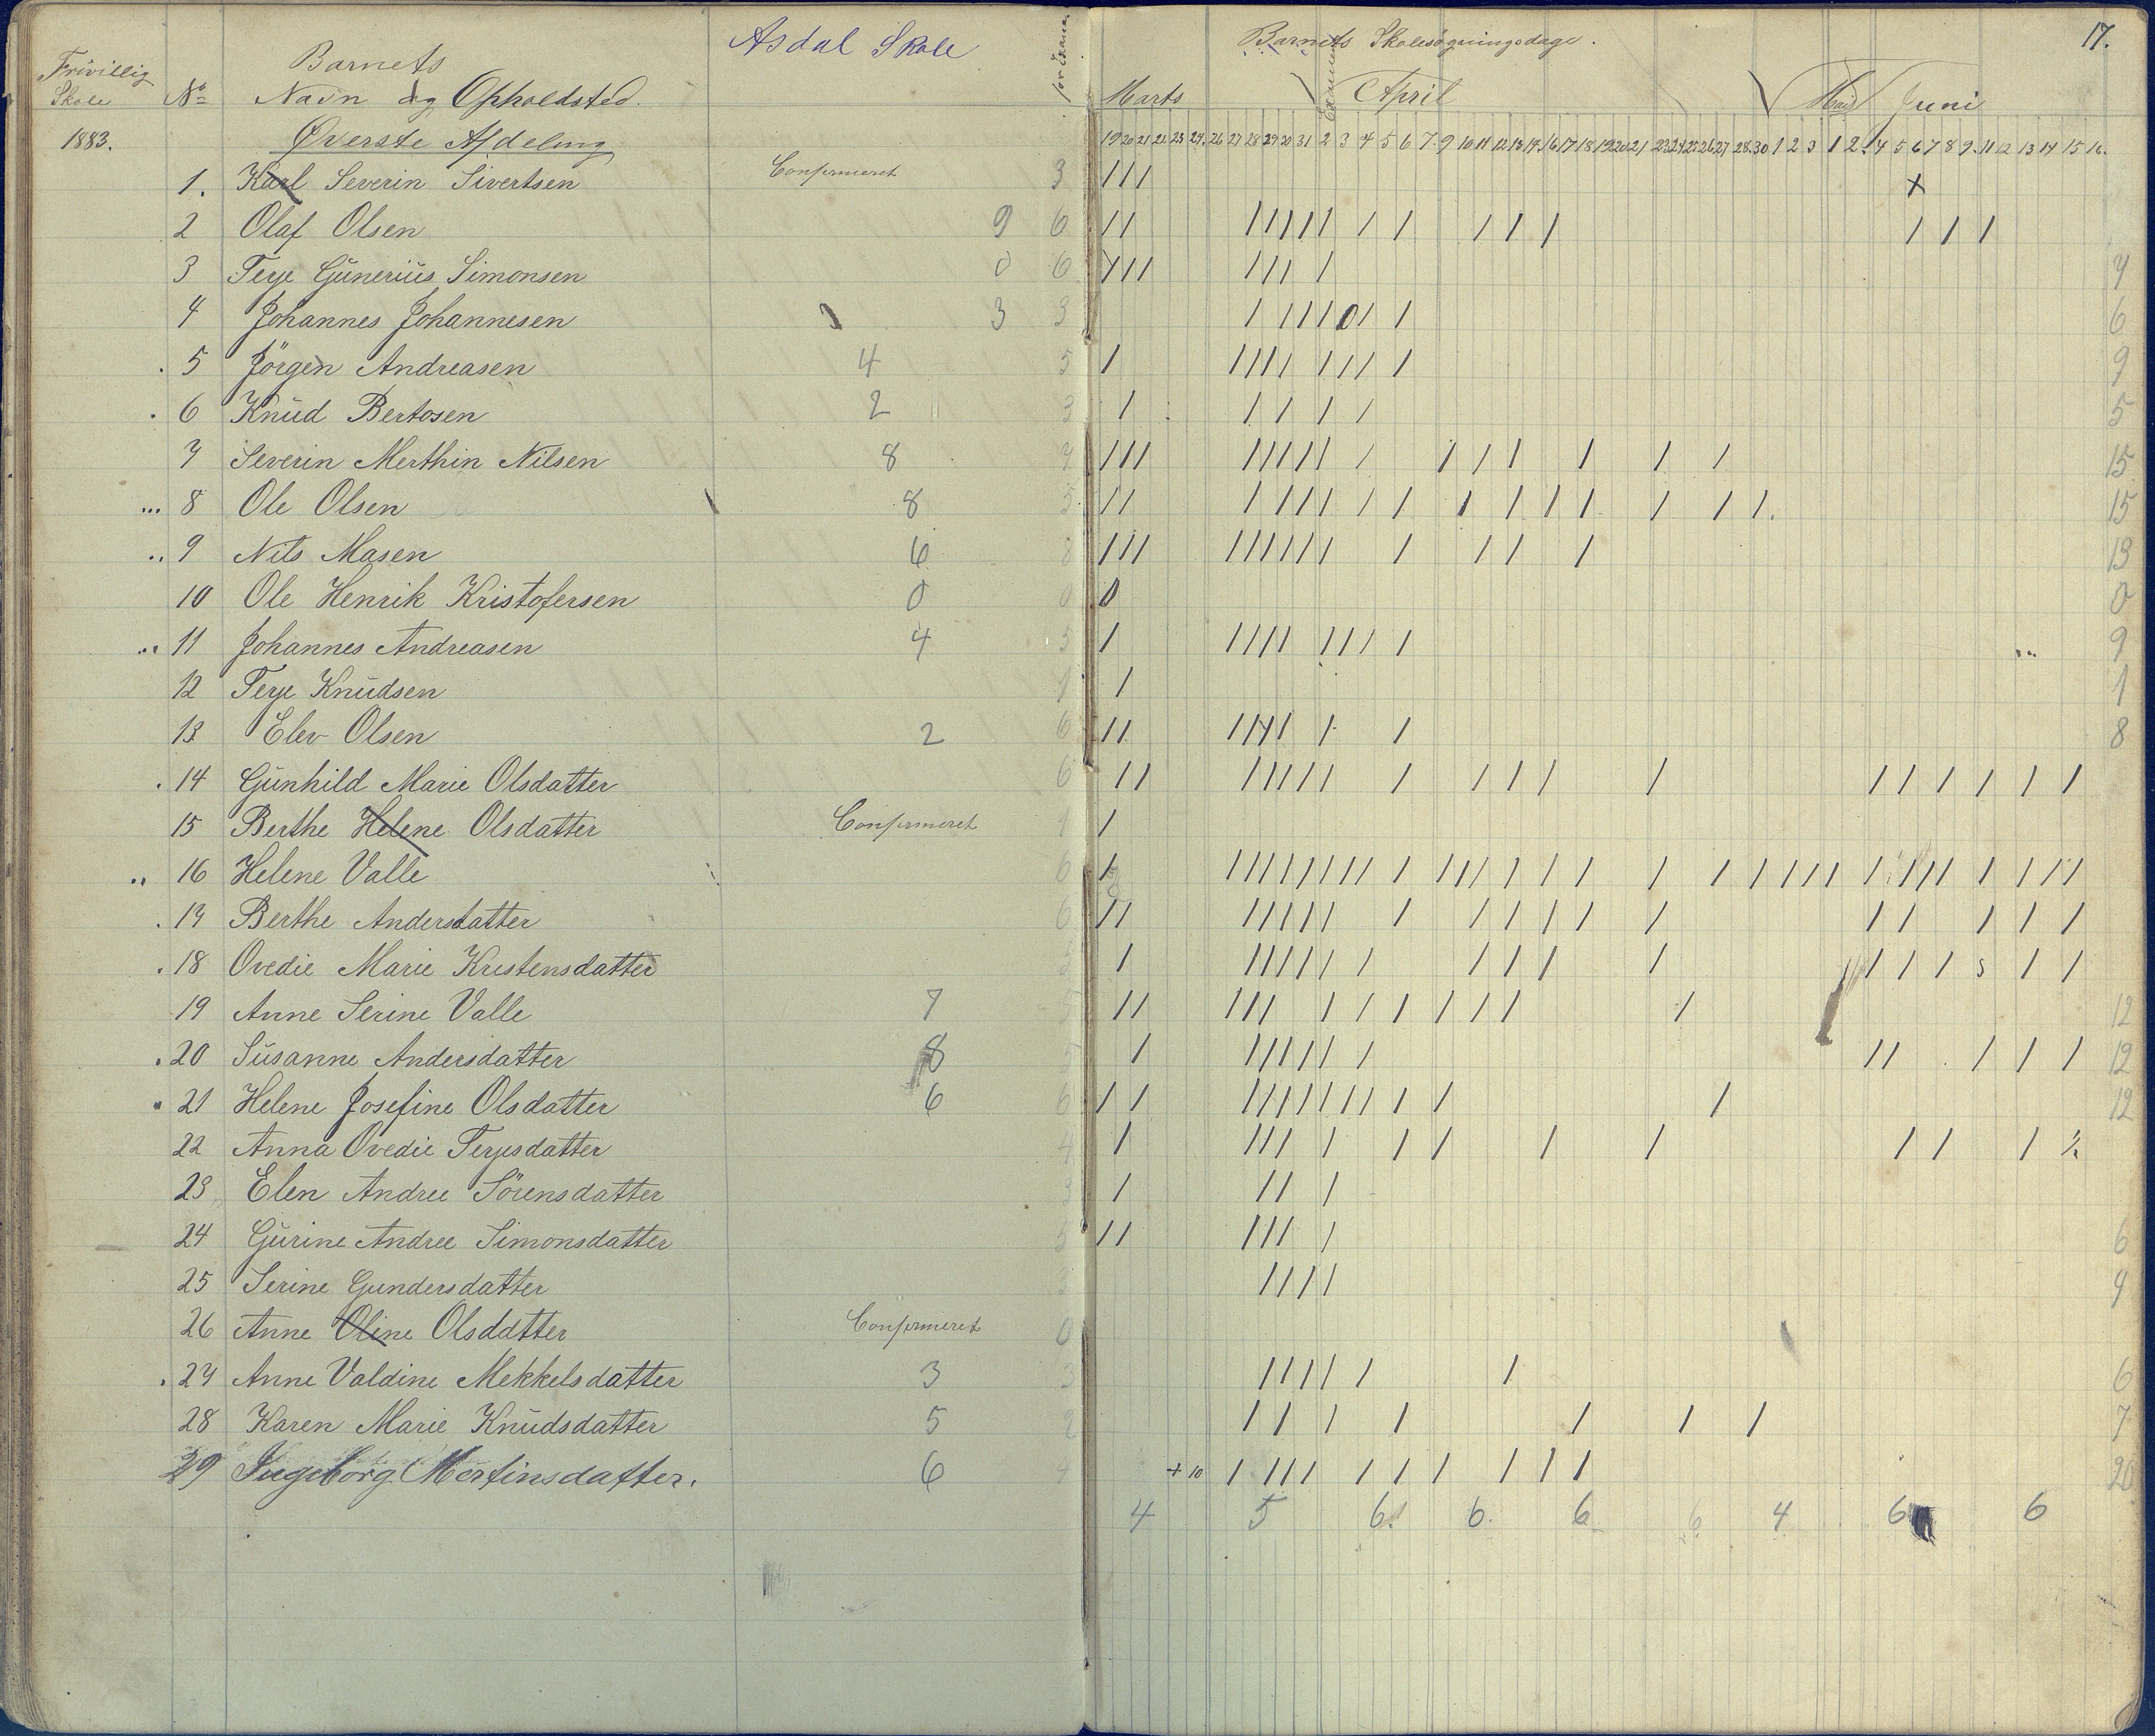 Frivillig Skole
1883.
No
Barnets
Navn og Opholdsted.
Asdal Skole
Øverste Afdeling
Barnets Skolesøgningsdage.
17.
Marts
Examen
April
Mai
Juni
19 20 21 22 23 24. 26 27 28 29 30 31 2 3 4 5 6 7. 9 10 11 12 13 14. 16 17 18 19 20 21 23 24 25 26 27 28 30 1 2 3 1 2. 4 5 6 7 8 9. 11 12 13 14 15 16.
1. Karl Severin Sivertsen Confirmeret 3 / / / x
2 Olaf Olsen 9 6 / / / / / / / / / / / / / / /
3 Terje Gunerius Simonsen 0 6 / / / / / / /
4 Johannes Johannesen 3 3 / / / / 0 / / 6
. 5 Jörgen Andreasen 4 5 / / / / / / / / / 9
. 6 Knud Bertosen 2 3 / / / / / 5
7 Severin Merthin Nilsen 8 / / / / / / / / / / / / / / / 15
... 8 Ole Olsen 8 5 / / / / / / / / / / / / / / / / 15
.. 9 Nils Masen 6 8 / / / / / / / / / / / / / 13
10 Ole Henrik Kristofersen 0 0 0 0
... 11 Johannes Andreasen 4 5 / / / / / / / / / 9
12 Terje Knudsen 1 / 1
13 Elev Olsen 2 6 / / / / / / / / 8
. 14 Gunhild Marie Olsdatter 6 / / / / / / / / / / / / / / / / / / /
15 Berthe Helene Olsdatter Confirmeret 1 /
.. 16 Helene Valle 6 / / / / / / / / / / / / / / / / / / / / / / / / / / / / / / / / /
. 17 Berthe Andersdatter 6 / / / / / / / / / / / / / / / / / / /
. 18 Ovedie Marie Kristensdatter / / / / / / / / / / / / / / s / /
19 Anne Serine Valle 7 5 / / / / / / / / / / / / / 12
. 20 Susanne Andersdatter 8 5 / / / / / / / / / / / / 12
. 21 Helene Josefine Olsdatter 6 6 / / / / / / / / / / / / / 12
22 Anna Ovedie Terjesdatter 4 / / / / / / / / / / / / ½
23 Elen Andree Sörensdatter 3 / / / /
24 Gurine Andree Simonsdatter 5 / / / / / / 6
25 Serine Gundersdatter 3 / / / /
26 Anne Oline Olsdatter Confirmeret 0
. 27 Anne Valdine Mekkelsdatter 3 3 / / / / / / 6
28 Karen Marie Knudsdatter 5 2 / / / / / / / 7
29 Ingeborg Mortinsdatter. 6 + 10 / / / / / / / / / / 20
4 5 6. 6. 6 6 4 6 6